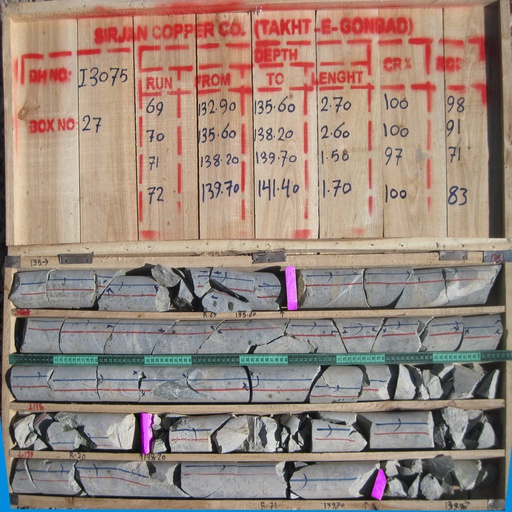 SIRJAN COPPER CO. (TAKHT-E-GONBAD)
DEPTH
BH NO: I3075 RUN FROM TO LENGHT CR% RQD
69 132.90 135.60 2.70 100 98
BOX NO: 27 70 135.60 138.20 2.60 100 91
71 138.20 139.70 1.50 97 71
72 139.70 141.40 1.70 100 83
R.69 135.60
R-70 138.20
R-71 139.70